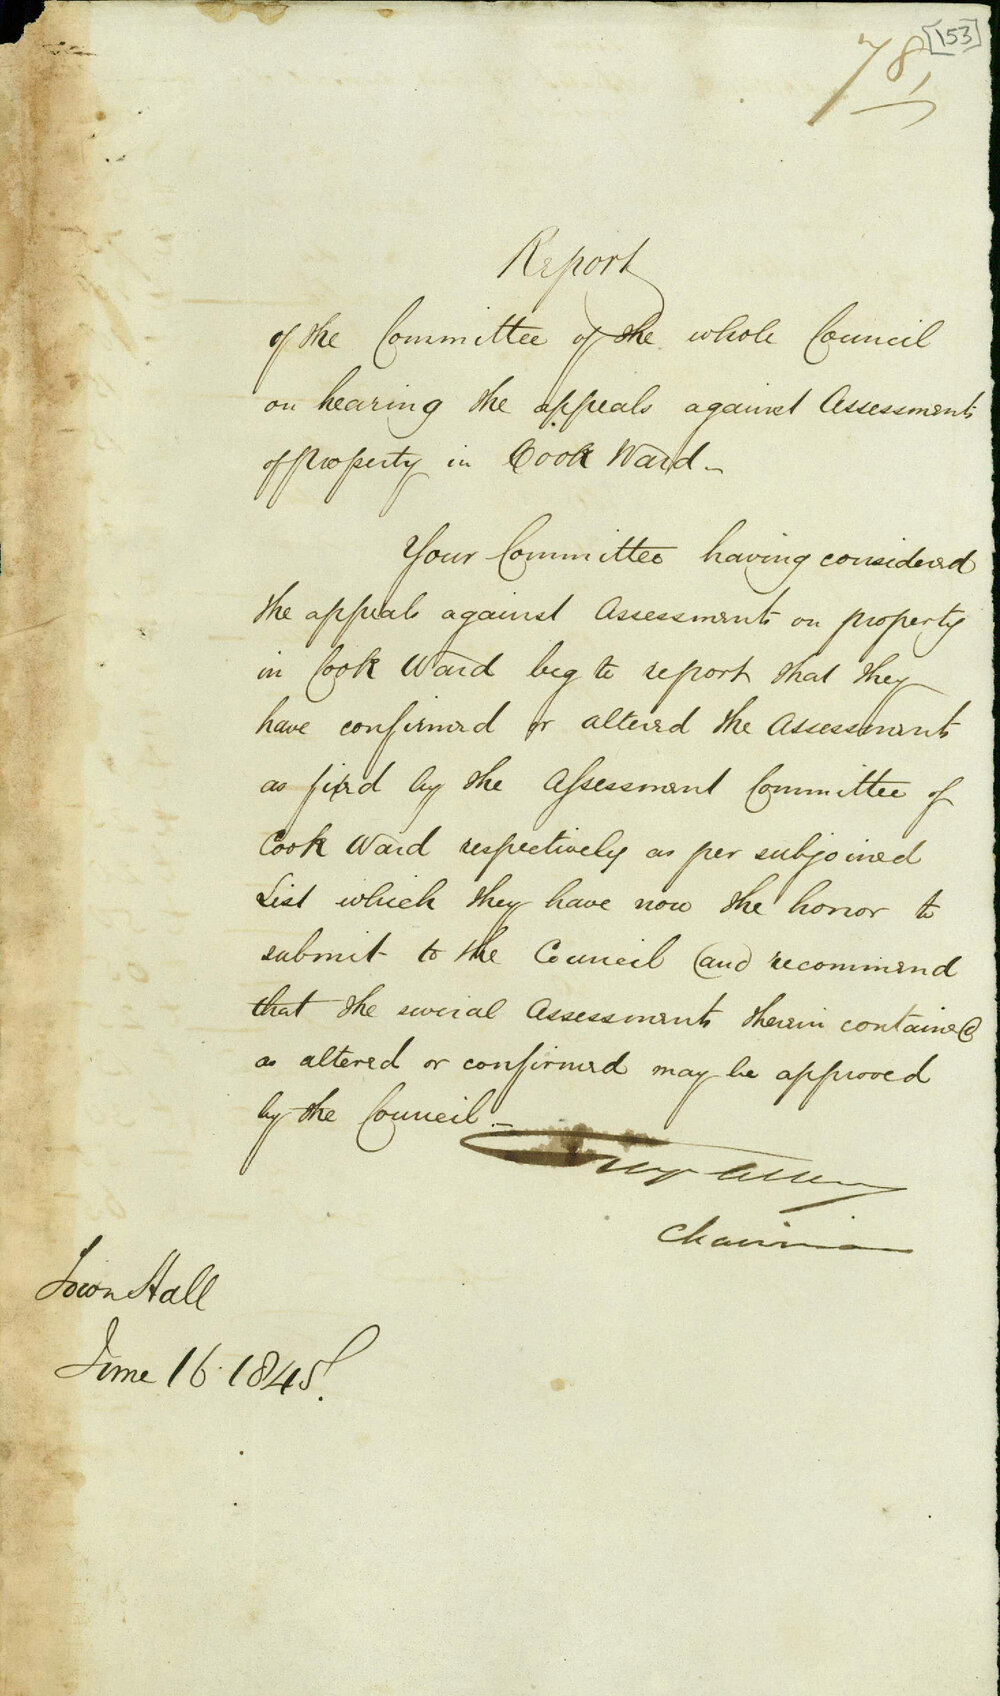 [153]
78
Report
of the Committee of the whole Council
on hearing the appeals against Assessments
of property in Cook Ward_
Your Committee having considered
the appeals against Assessments on property
in Cook Ward beg to report that they
have confirmed or altered the Assessments
as fixed by the Assessment Committee of
Cook Ward respectively as per subjoined
List which they have now the honor to
submit to the Council and recommend
that the several Assessments therein contained
as altered or confirmed may be approved
by the Council_
Allen
Chairman
Town Hall
June 16. 1845.